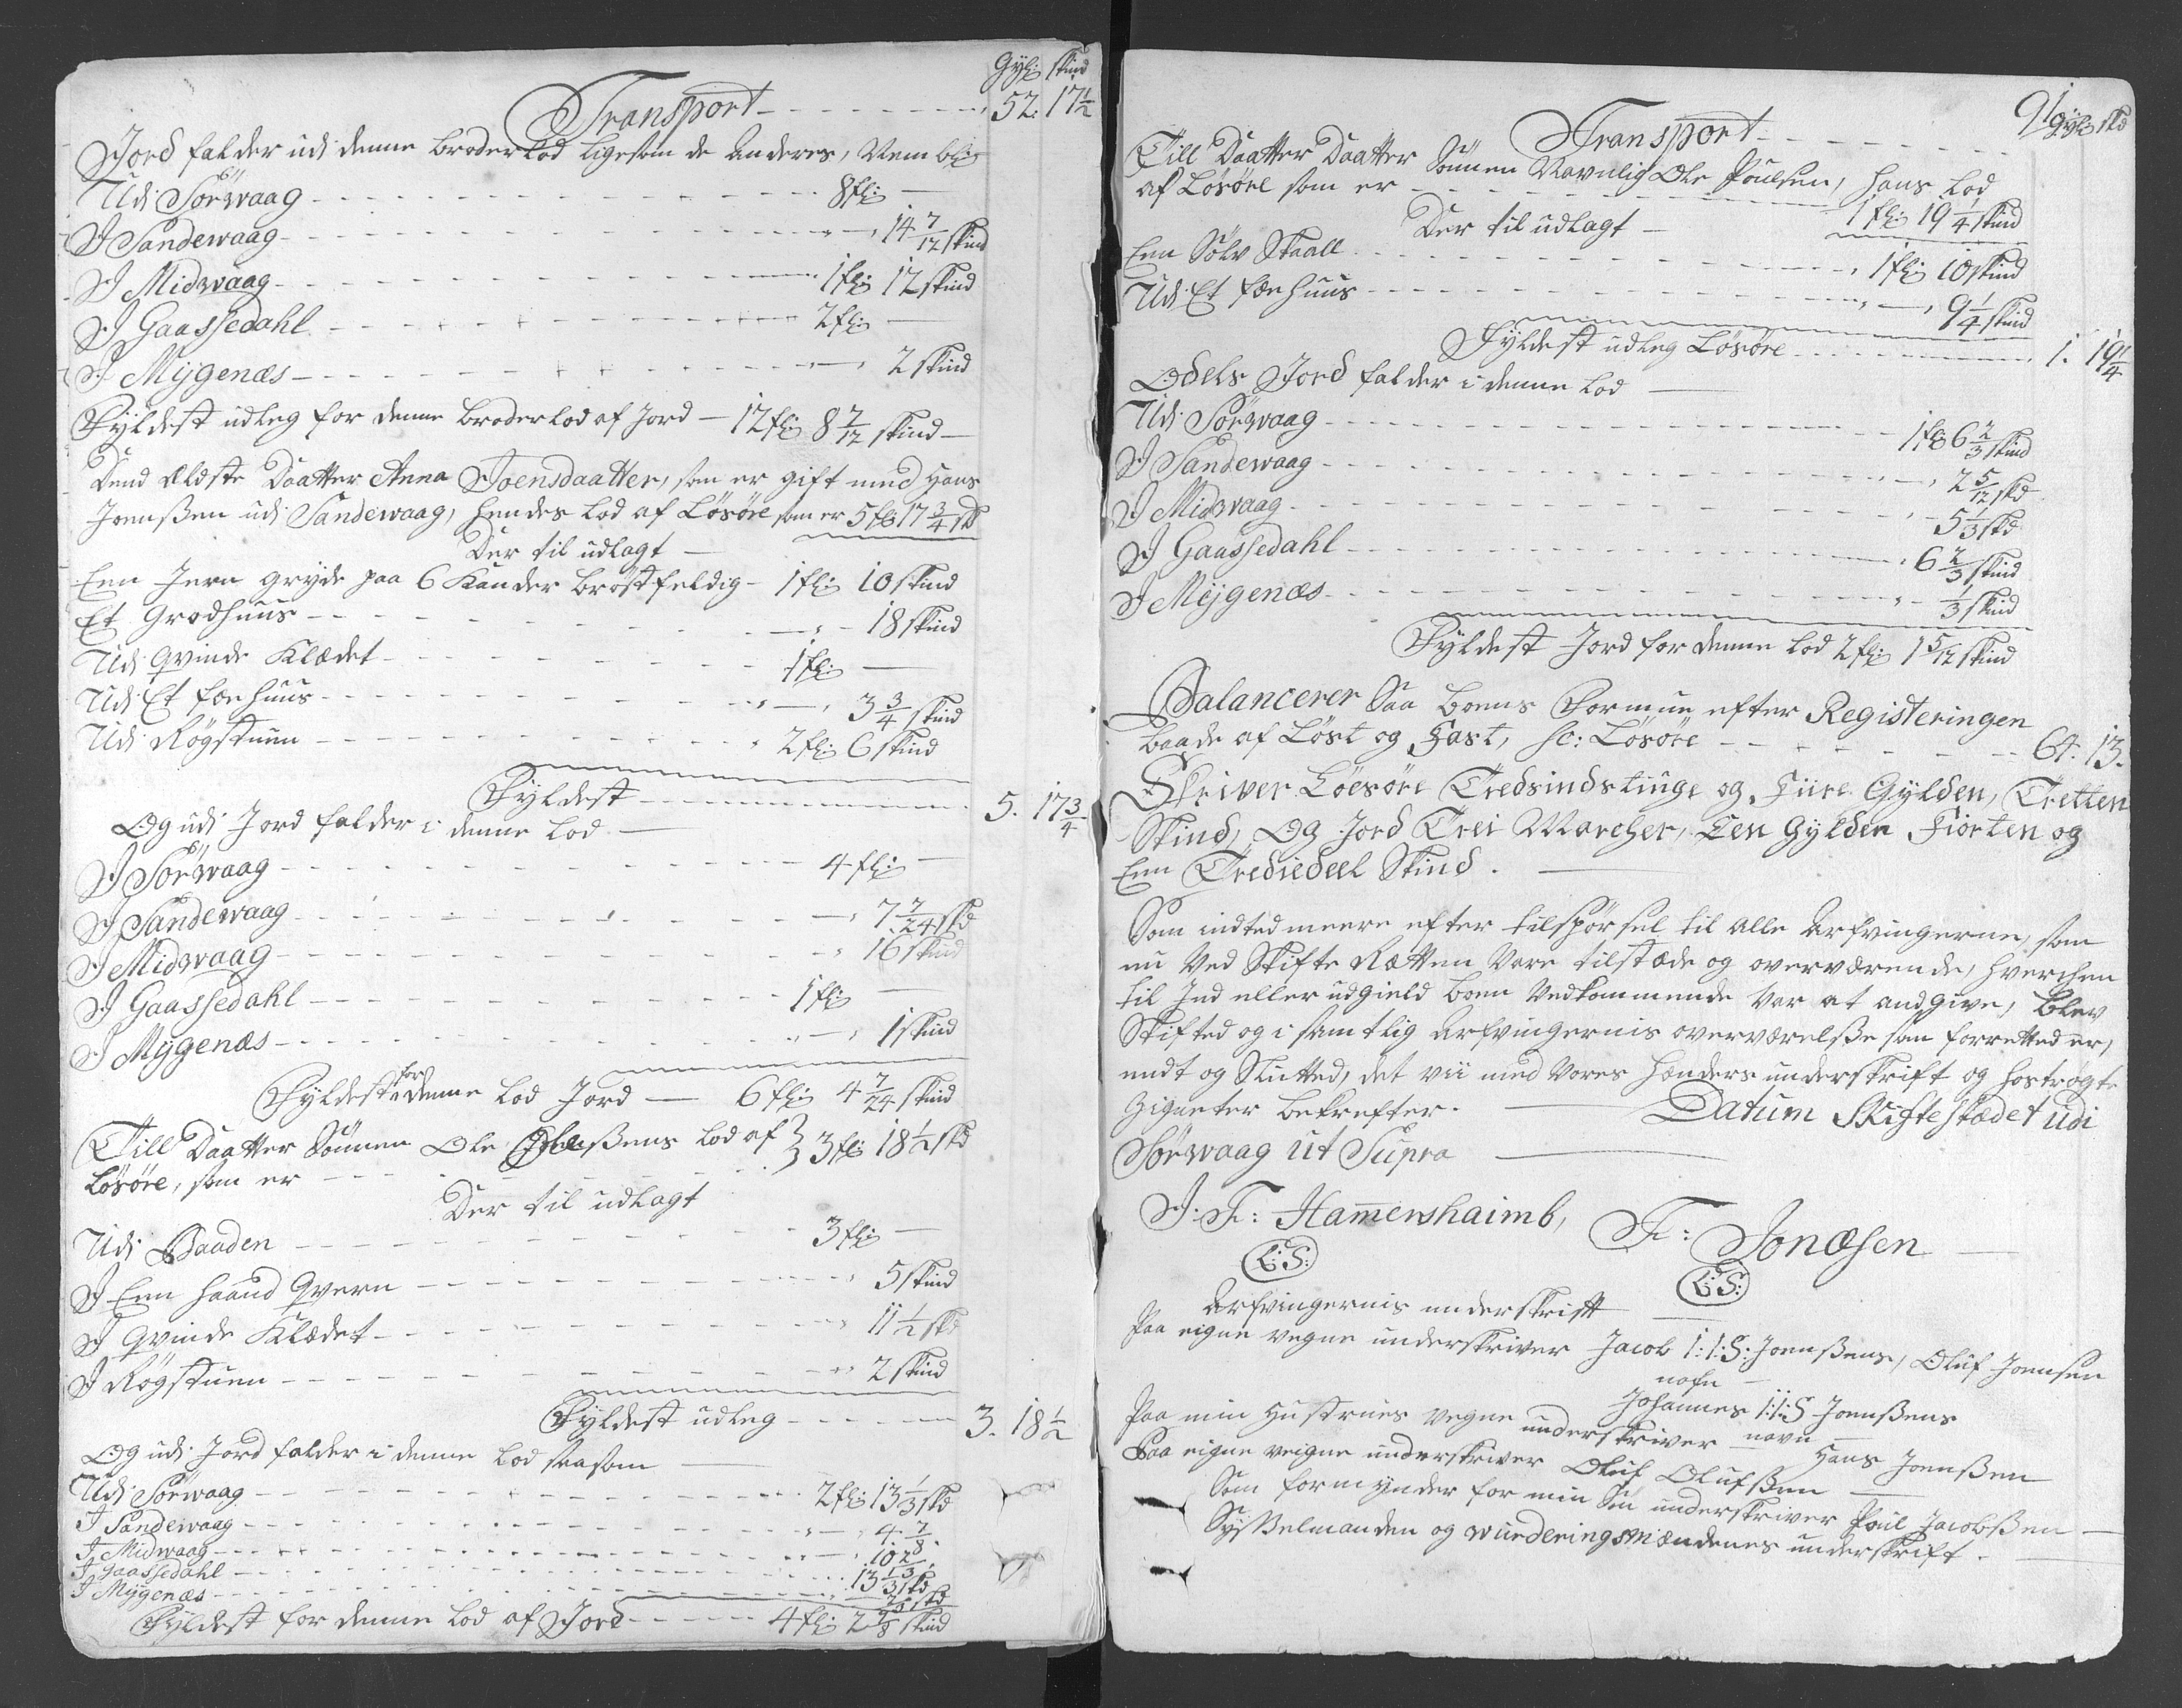 Gyl: skind
Transport - - - - - - - 52. 17½
Jord falder udi denne broder lod ligesom de Anderes, Nembl:
Udi Sörwaag - - - - - - 8 fl: —
I Sandewaag - - - - - - „ — „ 14 7/12 skind
I Midwaag - - - - - - 1 fl: 12 skind
I Gaassedahl - - - - - - 2 fl: —
I Mÿgenæs - - - - - - „ — „ 2 skind
Fyldest udleg for denne broder lod af Jord — 12 fl: 8 7/12 skind —
Dend Eldste Daatter Anna Joensdaatter, som er gift med Hans
Joensßen udi Sandewaag, hendes lod af Lösöre som er 5 fl: 17¾ sk
Der til udlagt —
Een Jern gryde paa 6 Kander bröstfeldig - 1 fl: 10 skind
Et Grodhuus - - - - - - „ - 18 skind
Udi Qvinde Klædet - - - - - - 1 fl: —
Udi Et foehuus - - - - - - „ — „ 3¾ skind
Udi Rögstuen - - - - - - 2 fl: 6 skind
Fyldest - - - - - - 5. 17¾
Og udi Jord falder i denne lod —
I Sörwaag - - - - - - 4 fl: —
I Sandewaag - - - - - - „ 7 7/24 skd
I Midwaag - - - - - - „ 16 skind
I Gaassedahl - - - - - - 1 fl: —
I Mÿgenæs - - - - - - „ — „ 1 skind
Fyldest for denne lod Jord — 6 fl: 4 7/24 skind
Till Daatter Sönnen Ole Oleßens lod af } 3 fl: 18½ skd
Lösöre, som er - - - - - -
Der til udlagt
Udi Baaden - - - - - - 3 fl: —
I Een haand Qvern - - - - - - „ 5 skind
I Qvinde Klædet - - - - - - „ 11½ skd
I Rögstuen - - - - - - „ 2 skind
Fyldest udleg - - - - - 3. 18½
Og udi Jord falder i denne lod saasom —
Udi Sörwaag - - - - - - 2 fl: 13⅓ skd
I Sandewaag - - - - - - „ — „ 4. 7/8.
I Midwaag - - - - - - „ — „ 10⅔.
I Gaassedahl - - - - - - „ 13⅓ skd
I Mÿgenæs - - - - - - „ — ⅔ skd
Fyldest for denne lod af Jord - - - - - 4 fl: 2 7/8 skind
91
Gyl: skd
Transport - - - - - -
Till Daatter Daatter Sönnen Navnlig Ole Poulsen, hans lod
af Lösöre som er - - - - - - 1 fl: 19¼ skind
Der til udlagt —
Een Sölv Skaall - - - - - - 1 fl: 10 skind
Udi Et foehuus - - - - - - „ — „ 9¼ skind
Fyldest udleg Lösöre - - - - - - 1. 19¼
Odels Jord falder i denne lod —
Udi Sörwaag - - - - - - 1 fl: 6⅔ skind
I Sandewaag - - - - - - „ 2 5/12 skd
I Midwaag - - - - - - „ 5⅓ skd
I Gaassedahl - - - - - - „ 6⅔ skind
I Mÿgenæs - - - - - - „ - ⅓ skind
Fyldest Jord for denne lod 2 fl: 1 5/12 skind
Balancerer saa boens Formue efter Registeringen
baade af Löst og Fast, sc: Lösöre - - - - - - 64. 13.
Skriver Löesöre Tredsindstiuge og Fiire Gylden, Tretten
Skind, Og Jord Trei Marcher, Een Gylden Fiorten og
Een Trediedeel Skind. —
Som indted meere efter tilspörsel til alle Arfvingerne, som
nu Ved Skifte Rætten Vare tilstæde og overværende, hverchen
til Ind eller udgield boen Vedkommende Var at andgive, blev
Skifted og i samtlig Arfvingernis overværelße saa forretted er,
endt og Slutted, det vii med Vores hænders underskrift og hoströgte
Zigneter bekrefter. — Datum Skiftestædet udi
Sörwaag ut Supra —
J. F: Hamershaimb, F: Jonæsen —
(L:S:) (L:S:)
Arfvingernis underskrift —
Paa eigne vegne underskriver Jacob I:I:S: Joensßens, Oluf Joensen
nafn —
Johannes I:I:S Joensßens
navn —
Paa min Hustrues vegne underskriver Hans Joensßen
Paa eigne veigne underskriver Oluf Olufsßen —
Som formÿnder for min Sön underskriver Poul Jacobsßen —
Sysßelmanden og wurderingsmændenes underskrift. —